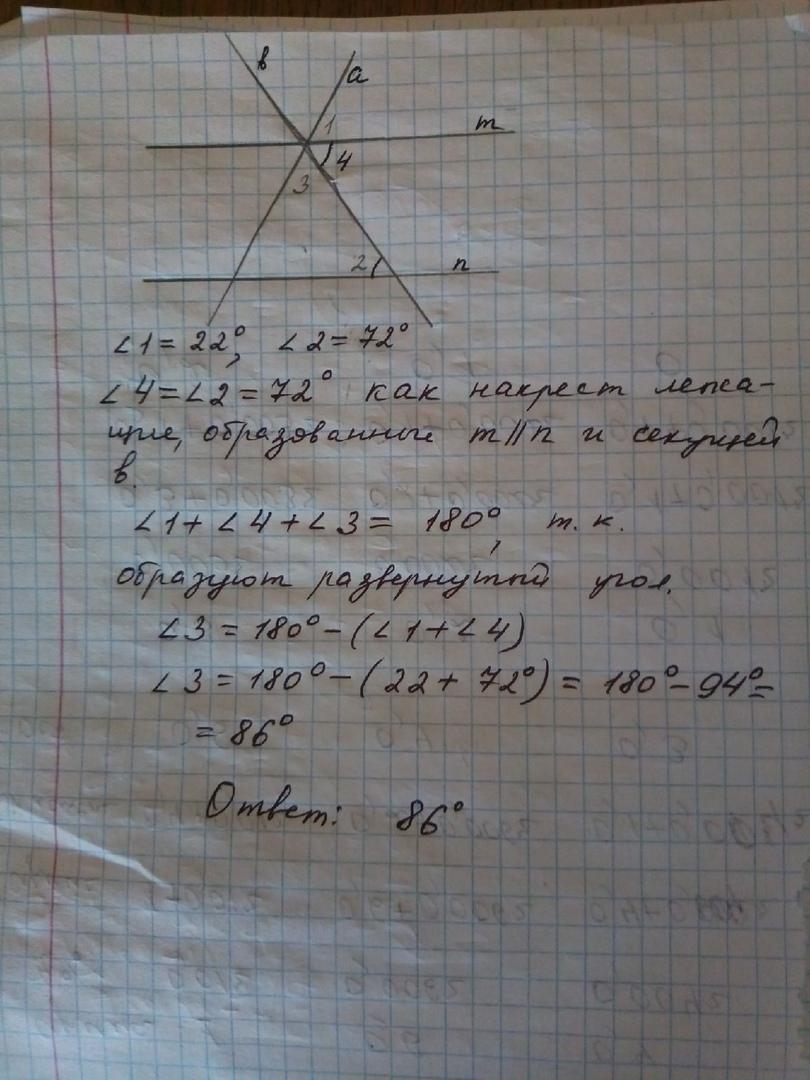 в
a
1
m
4
3
2
n
∠1 = 22°, ∠2 = 72°
∠4 = ∠2 = 72° как накрест лежа-
щие, образованные m || n и секущей
в.
∠1 + ∠4 + ∠3 = 180°, т. к.
образуют развернутый угол.
∠3 = 180° − (∠1 + ∠4)
∠3 = 180° − (22 + 72°) = 180° − 94° =
= 86°
Ответ: 86°